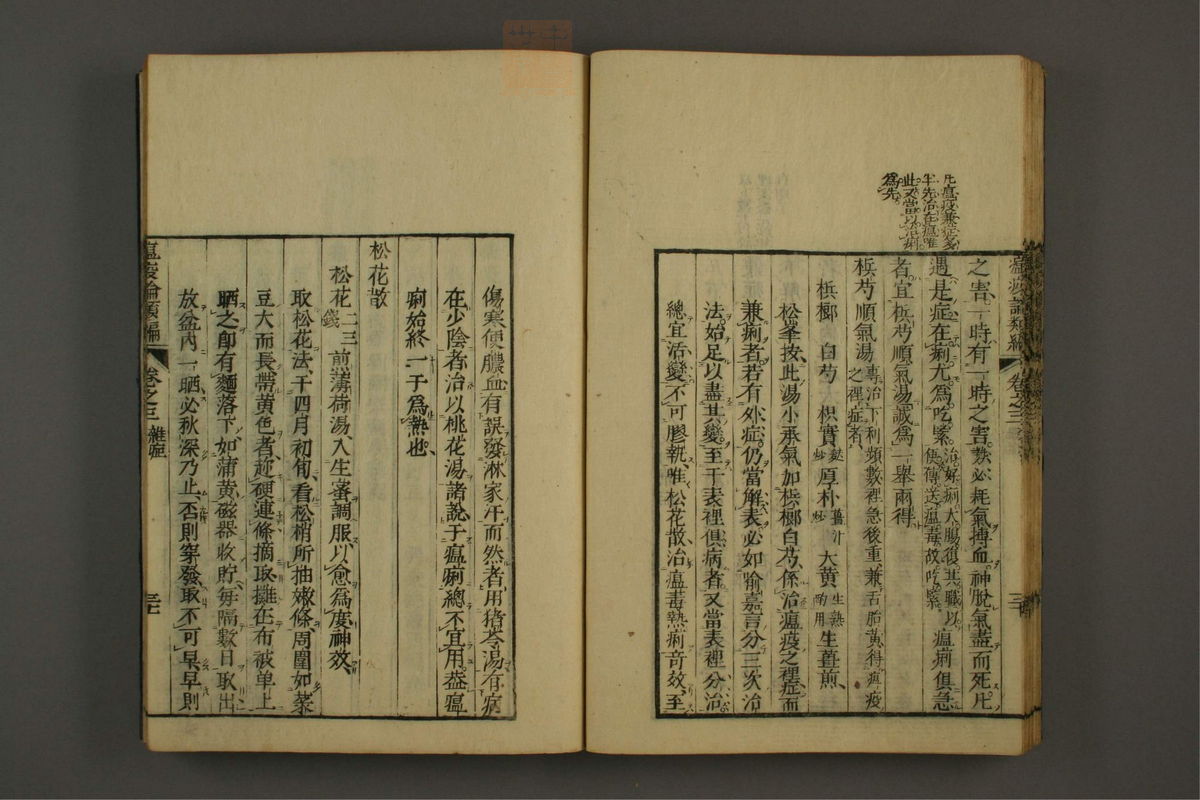 凡瘟疫兼症多
半先治在瘟唯
此又當以治痢
爲先
瘟疫論類編 卷之三
之害一時有一時之害數必耗氣搏血神脫氣盡而死凡
遇是症在痢尤爲吃緊治好痢大腸復其職以便傳送瘟毒故吃緊瘟痢俱急
者宜檳芍順氣湯誠爲一舉兩得
檳芍順氣湯專治下利頻數裡急後重兼舌胎黃得疫之裡症者
檳榔 白芍 枳實 厚朴薑汁炒 大黃生熟酌用 生薑煎
松峯按此湯小承氣加檳榔白芍係治瘟疫之裡症而
兼痢者若有外症仍當解表必如喻嘉言分三次治
法始足以盡其變至于表裡俱病者又當表裡分治
總宜活變不可膠執唯松花散治瘟毒熱痢奇效至
傷寒便膿血有誤發淋家汗而然者用猪苓湯有病
在少陰者治以桃花湯諸說于瘟痢總不宜用葢瘟
痢始終一于爲熱也
松花散
松花二三錢 前薄荷湯入生蜜調服以愈爲度神效
取松花法于四月初旬看松梢所抽嫩條周圍如菜
豆大而長帶黃色者趂硬連條摘取攤在布被单上
晒之卽有麵落下如蒲黃磁器收貯每隔數日取出
放盆內一晒必秋深乃止否則穿發取不可早早則
瘟疫論類編 卷之三 雜症